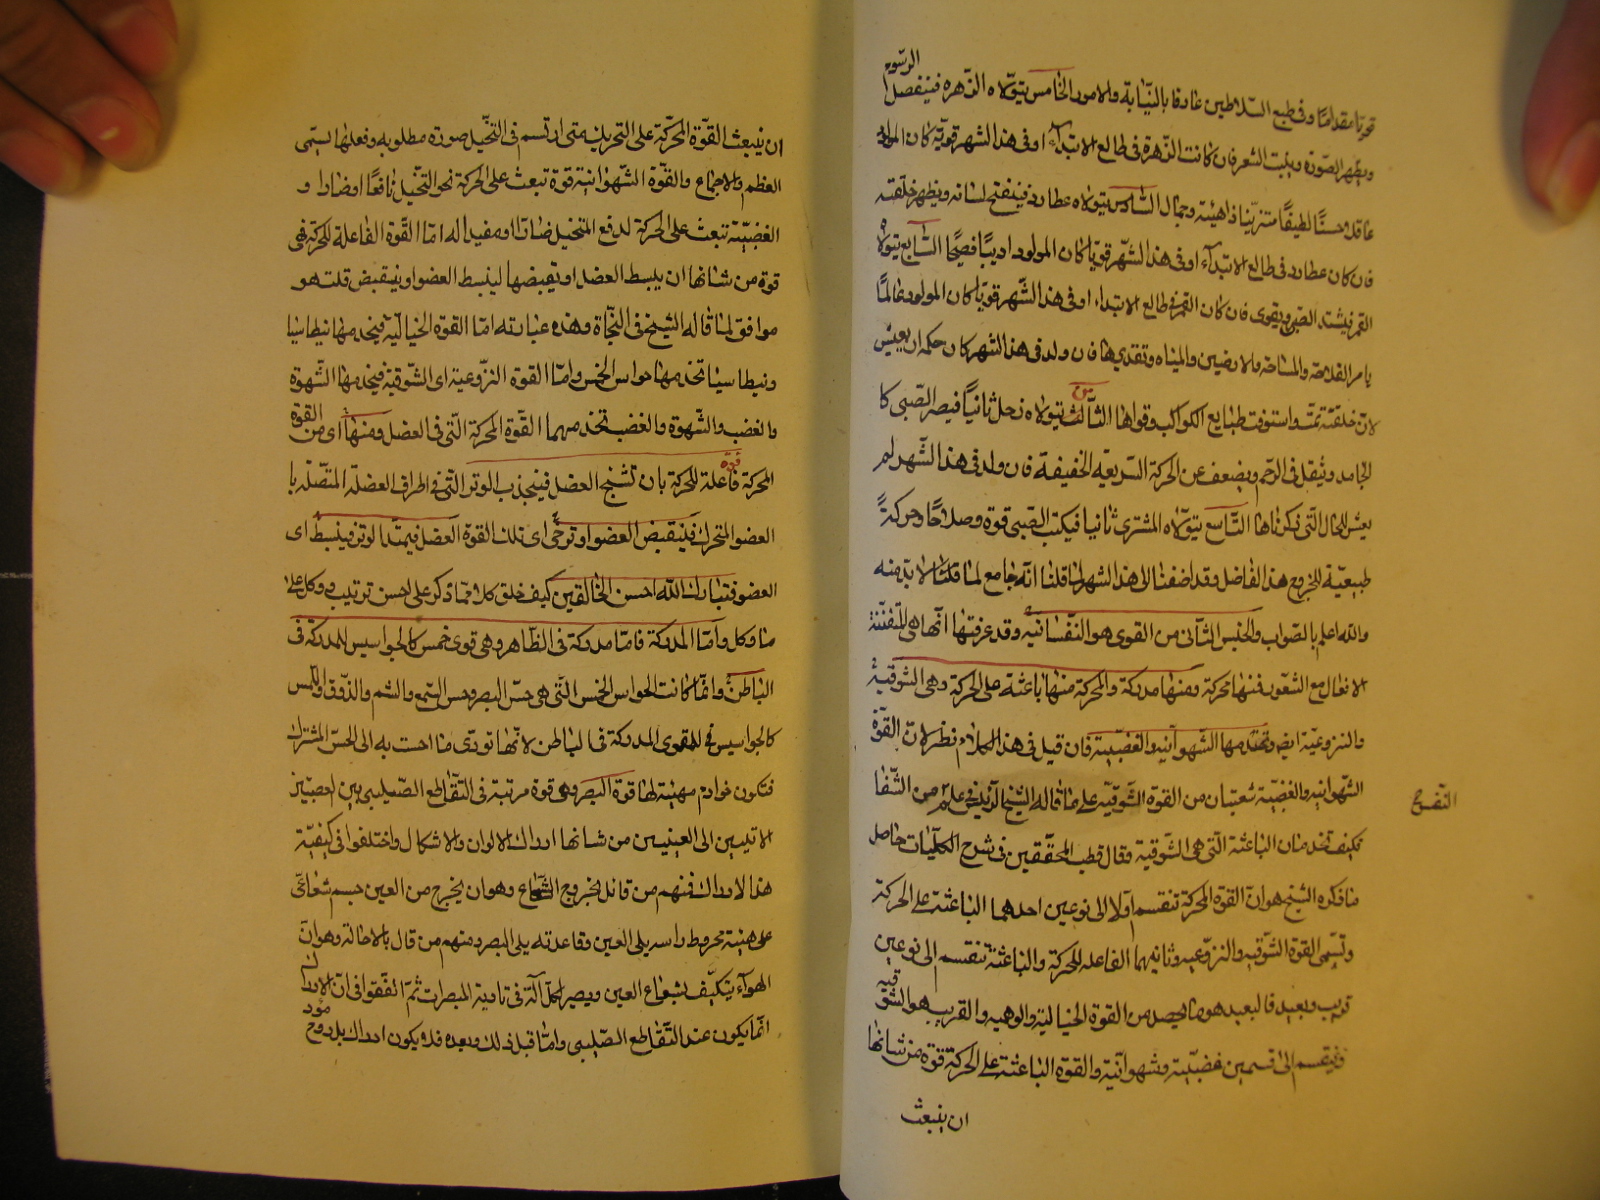 الرسوم
مقداما وفي طبع السلاطين عارفا بالنيابة والامور الخامس يتولاه الزهره فينفصل
ويظهر الصورة وينبت الشعر فان كانت الزهرة في طالع الابتداء او في هذا الشهر قوية كان المولود
عاقلا حسنا لطيفا متزينا ذا هيئة وجمال السادس يتولاه عطارد فينفتح لسانه ويظهر خلقته
فان كان عطارد في طالع الابتداء او في هذا الشهر قويا كان المولود اديبا فصيحا السابع يتولاه
القمر فيشتد الصبي ويقوى فان كان القمر في طالع الابتداء او في هذا الشهر قويا كان المولود عالما
بامر الفلاحة والمساحة والارضين والمياه وتقديرها فان ولد في هذا الشهر كان حكمه ان يعيش
لان خلقته تمت واستوفت طبايع الكواكب وقواها الثالث يتولاه زحل ثانيا فيصير الصبي كا
من
لجامد ويثقل في الرحم ويضعف عن الحركة السريعه الخفيفة فان ولد في هذا الشهر لم
يعش للحال التي ذكرناها التاسع يتولاه المشترى ثانيا فيكتب الصبي قوة وصلاحا وحركة
طبيعية للخروج هذا الفاضل وقد اضفنا الى هذا الشهر لما قلنا انه جامع لما قلنا لا بد منه
والله اعلم بالصواب والجنس الثاني من القوى هو النفسانيه وقد عرفتها انها هي المتفننة
الافعال مع الشعور فمنها محركة ومنها مدركة والمحركة منها باعثة على الحركة وهي الشوقية
والنزوعية ايضا وتخدمها الشهوانيه والغضبية فان قيل في هذا الكلام نظر لان القوة
الشهوانيه والغضبية شعبتان من القوة الشوقيه على ما قاله الشيخ الرئيس في علم من الشفا
فكيف تخدمان الباعثة التي هي الشوقية وقال قطب المحققين في شرح الكليات حاصل
ما ذكره الشيخ هو ان القوة المحركة تنقسم اولا الى نوعين احدهما الباعثة على الحركة
وتسمى القوة الشوقيه والنزوعيه وثانيهما الفاعله للحركة والباعثة تنقسم الى نوعين
قريب وبعيد فالبعيد هو ما يحصل من القوة الخيالية والوهيه والقريب هو الشو
قيه
وينقسم الى قسمين غضبية وشهوانية والقوة الباعثة على الحركة قوة من شانها
ان ينبعث
ان ينبعث القوة المحركة على التحريك متى ارتسم في التخيل صورة مطلوبه وفعلها يسمى
العظم والاجماع والقوة الشهوانية قوة تبعث على الحركة نحو التخيل نافعا او ضارا و
الغضبية تبعث على الحركة لدفع المتخيل ضارا او مفيدا له اما القوة الفاعلة للحركة فهي
قوة من شانها ان يبسط العضل او يقبضها لينبسط العضو او ينقبض قلت هو
موافق لما قاله الشيخ في النجاة وهذه عبارته اما القوة الخيالية فيخدمها بنطاسيا
وبنطاسيا تخدمها حواس الخمس واما القوة النزوعية اى الشوقية فيخدمها الشهوة
والغضب والشهوة والغضب تخدمهما القوة المحركة التي في العضل ومنها اى من القوة
المحركة قوة فاعلة للحركة بان تشنج العضل فينجذب الوتر التي في اطراف العضلة المتصلة با
العضو المتحرك فينقبض العضو او ترخى اى تلك القوة العضل فيمتد الوتر فينبسط اى
العضو فتبارك الله احسن الخالقين كيف خلق كلا مما ذكر على احسن ترتيب ووكل على
ما وكل واما المدركة فاما مدركة في الظاهر وهي قوى خمس كالجواسيس للمدركة في
الباطن وانما كانت الحواس الخمس التي هي حس البصر وحس السمع والشم والذوق واللمس
كالجواسيس للقوى المدركة في الباطن لانها تؤدى ما احست به الى الحس المشترك
فتكون خوادم مهنية لها قوة البصر وهي قوة مرتبة في التقاطع الصليبي بين العصبتين
الاتيتين الى العينين من شانها ادراك الالوان والاشكال واختلفوا في كيفية
هذا الادراك فمنهم من قال بخروج الشعاع وهو ان يخرج من العين جسم شعاعي
على هيئة مخروط راسه يلى العين وقاعدته يلى المبصر ومنهم من قال بالاحالة وهو ان
الهواء يتكيف بشعاع العين ويصير كل آلة في تادية المبصرات ثم اتفقوا في ان الادراك
انما يكون عند التقاطع الصليبي واما قبل ذلك وبعده فلا يكون ادراك بل روح